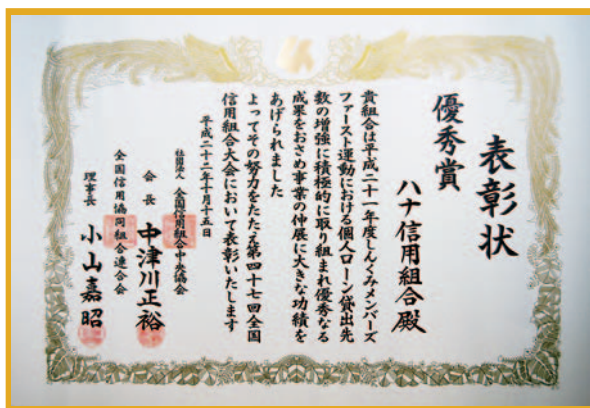 表彰状
優秀賞
ハナ信用組合殿
貴組合は平成二十一年度しんくみメンバーズ
ファースト運動における個人ローン貸出先
数の増強に積極的に取り組まれ優秀なる
成果をおさめ事業の伸展に大きな功績を
あげられました
よってその努力をたたえ第四十七回全国
信用組合大会において表彰いたします
平成二十二年十月十五日
社団法人 全国信用組合中央協会
会長 中津川正裕
全国信用協同組合連合会
理事長 小山嘉昭